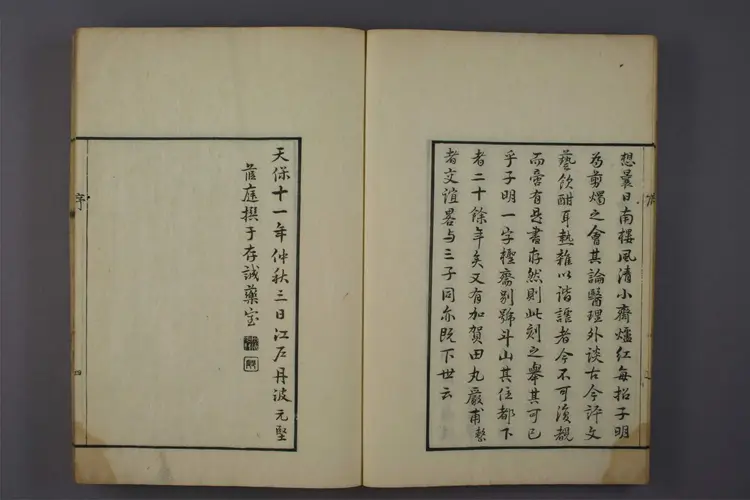 想曩日南樓風清小齋爐紅每招子明
為剪燭之會其論醫理外談古今評文
藝飲酣耳熱雜以諧謔者今不可復覩
而啻有是書存然則此刻之舉其可已
乎子明一字樫齋別號斗山其住都下
者二十餘年矣又有加賀田丸嚴甫繫
者文誼略与三子同亦既下世云
天保十一年仲秋三日江戶丹波元堅
茝庭撰于存誠藥室
序
四